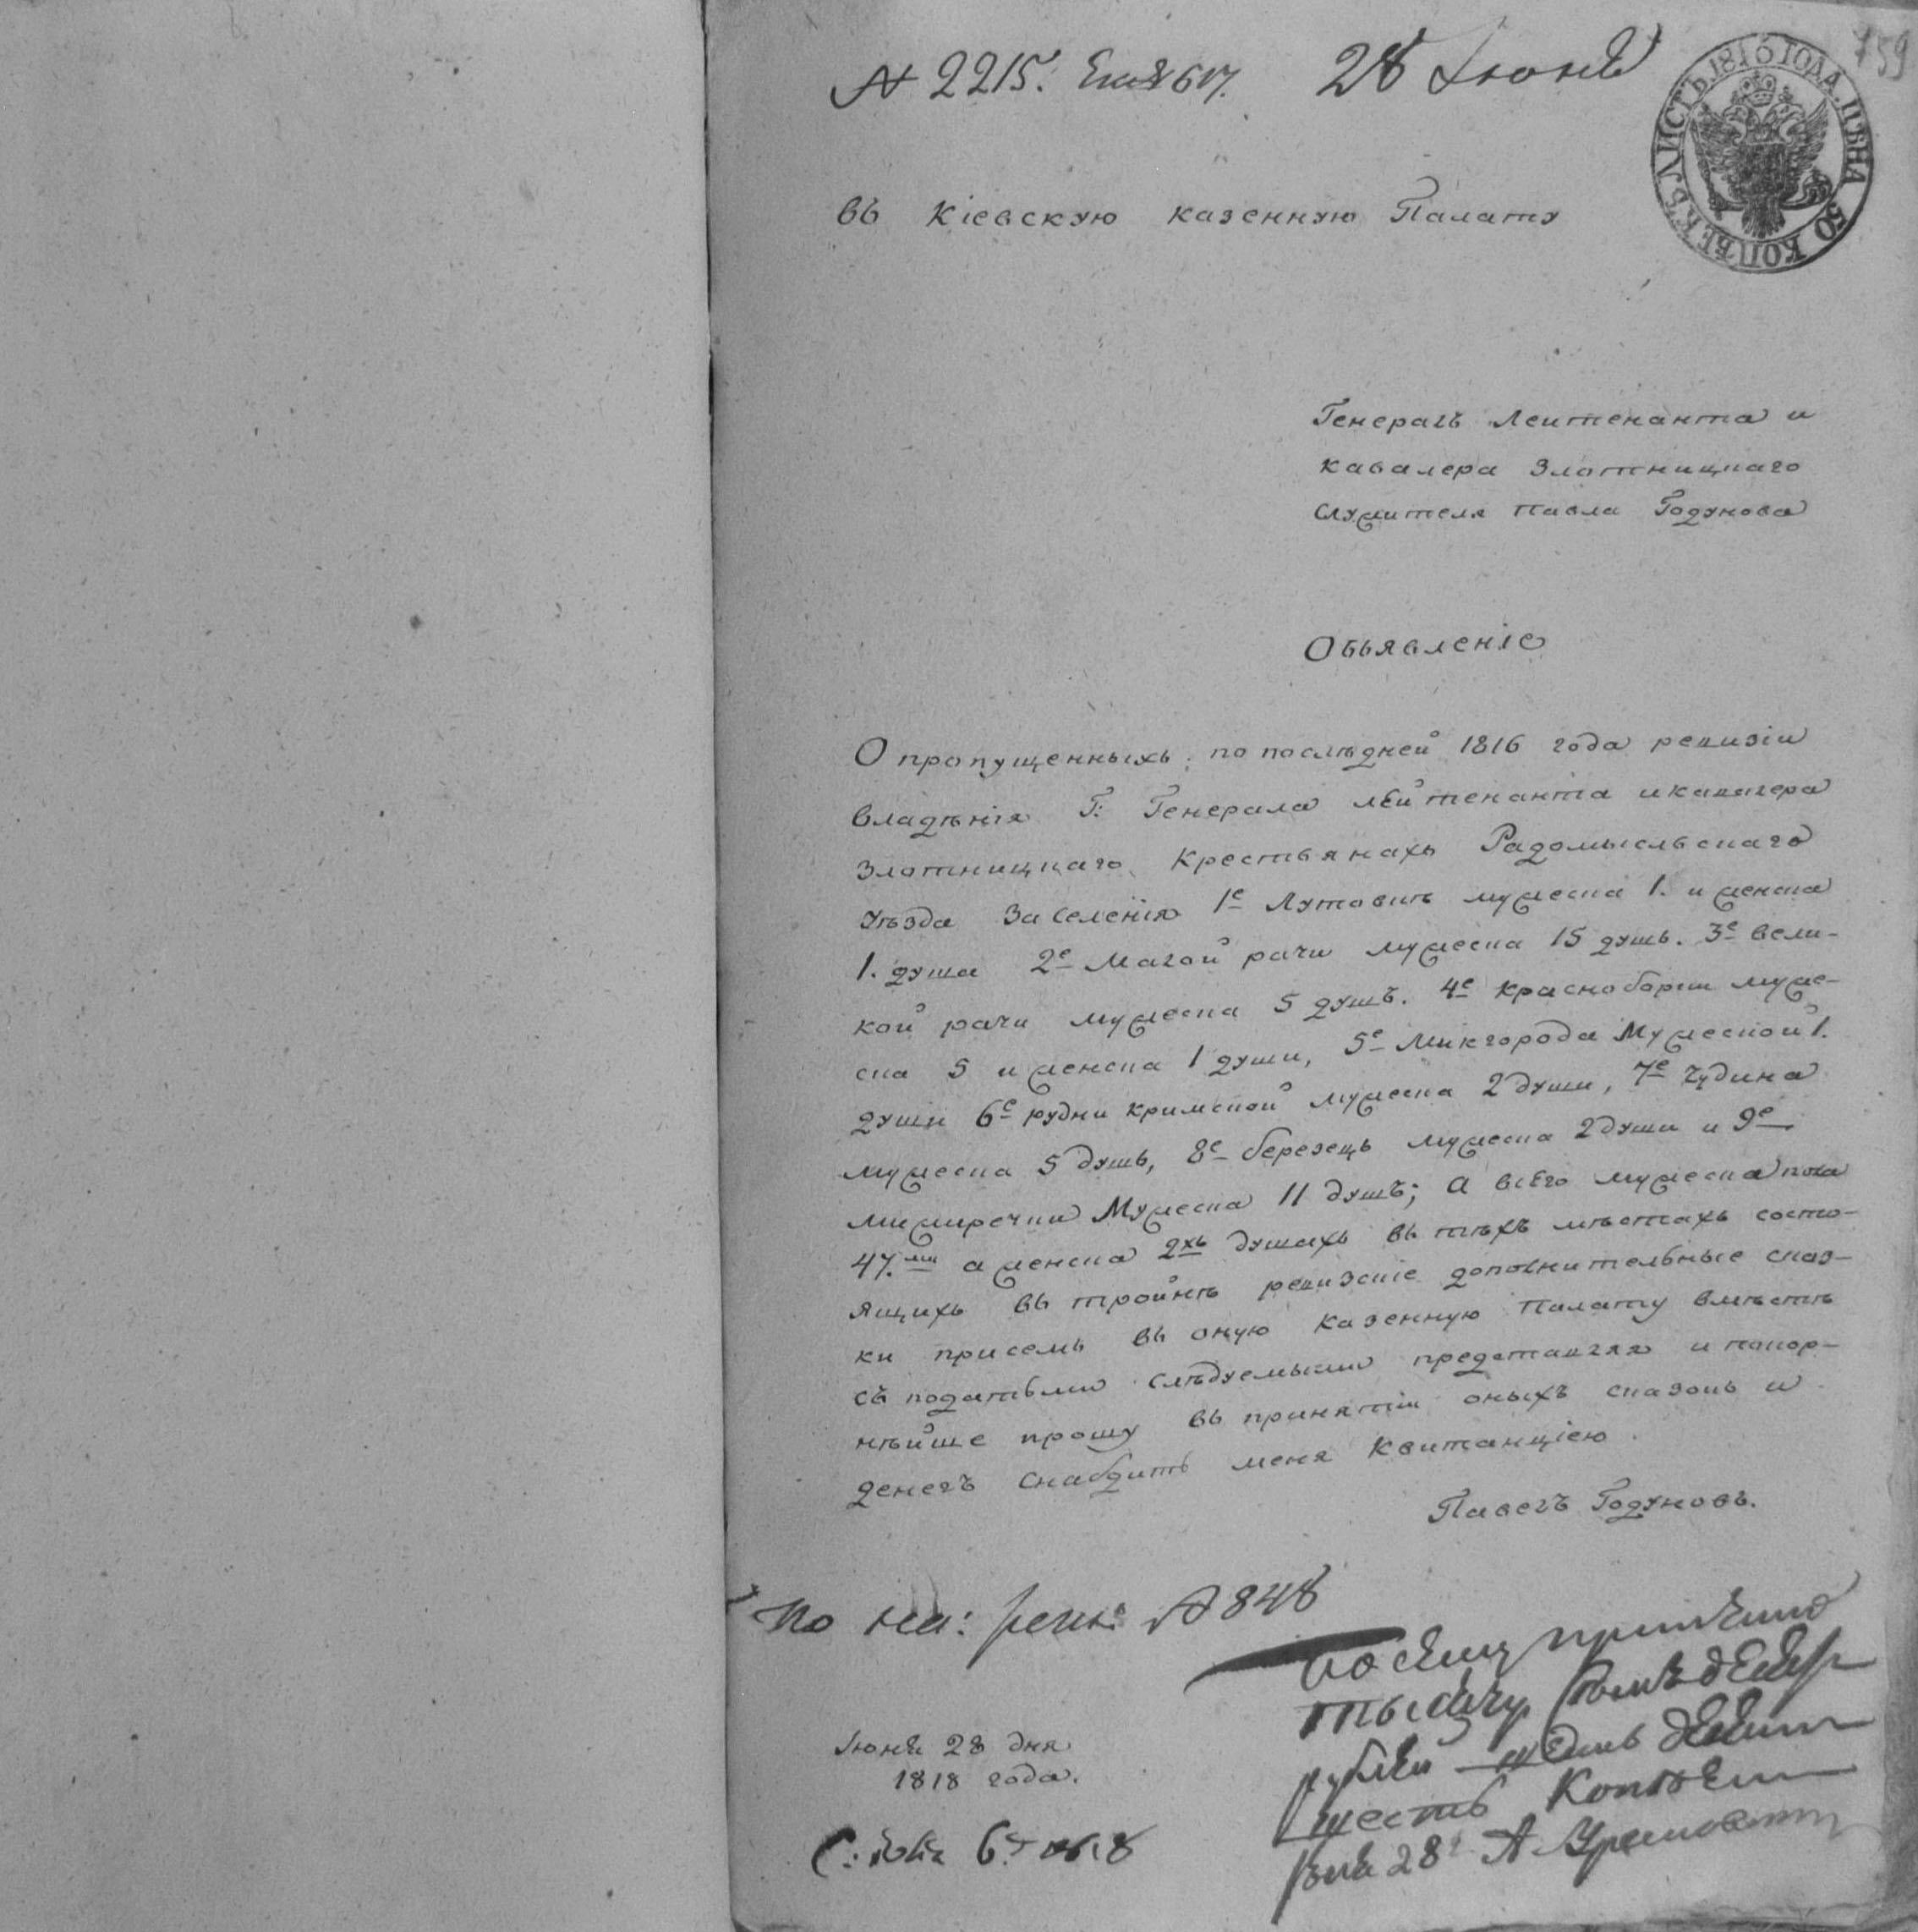 759
№ 2215. 28 Июня
ЛИСТЪ. 1816 ГОДА. ЦѢНА 50 КОПѢЕКЪ
въ Кіевскую казенную Палату
Генералъ Леитенанта и
кавалера Злотницкаго
служителя Павла Годунова
Объявленіе
О пропущенныхъ по послѣдней 1816 года ревизіи
владѣнія Г: Генерала лейтенанта и кавалера
Злотницкаго Крестьянахъ Радомысльскаго
уѣзда Заселенія 1е Лутовикъ мужеска 1. и женска
1. душа 2е Малой рачи мужеска 15 душъ. 3е вели-
кой рачи мужеска 5 душъ. 4е красноборки муже-
ска 5 и женска 1 души, 5е Мингорода Мужеской 1.
души 6е рудни кримской мужеска 2 души, 7е Чудина
мужеска 5 душъ, 8е березецъ мужеска 2 души и 9е
миржечки Мужеска 11 душъ; а всего мужеска пола
47.ми а женска 2хъ душахъ въ тѣхъ мѣстахъ состо-
ящихъ въ тройнѣ ревизскіе дополнительные сказ-
ки присемъ въ оную казенную палату вмѣстѣ
съ податьми слѣдуемыми представляя и покор-
нѣйше прошу въ принятіи оныхъ сказокъ и
денегъ снабдить меня квитанціею.
Павелъ Годуновъ.
По № 848
По сему принято
тысячу
рублей
шесть Копѣекъ
Июня 28 дня
1818 года.
28